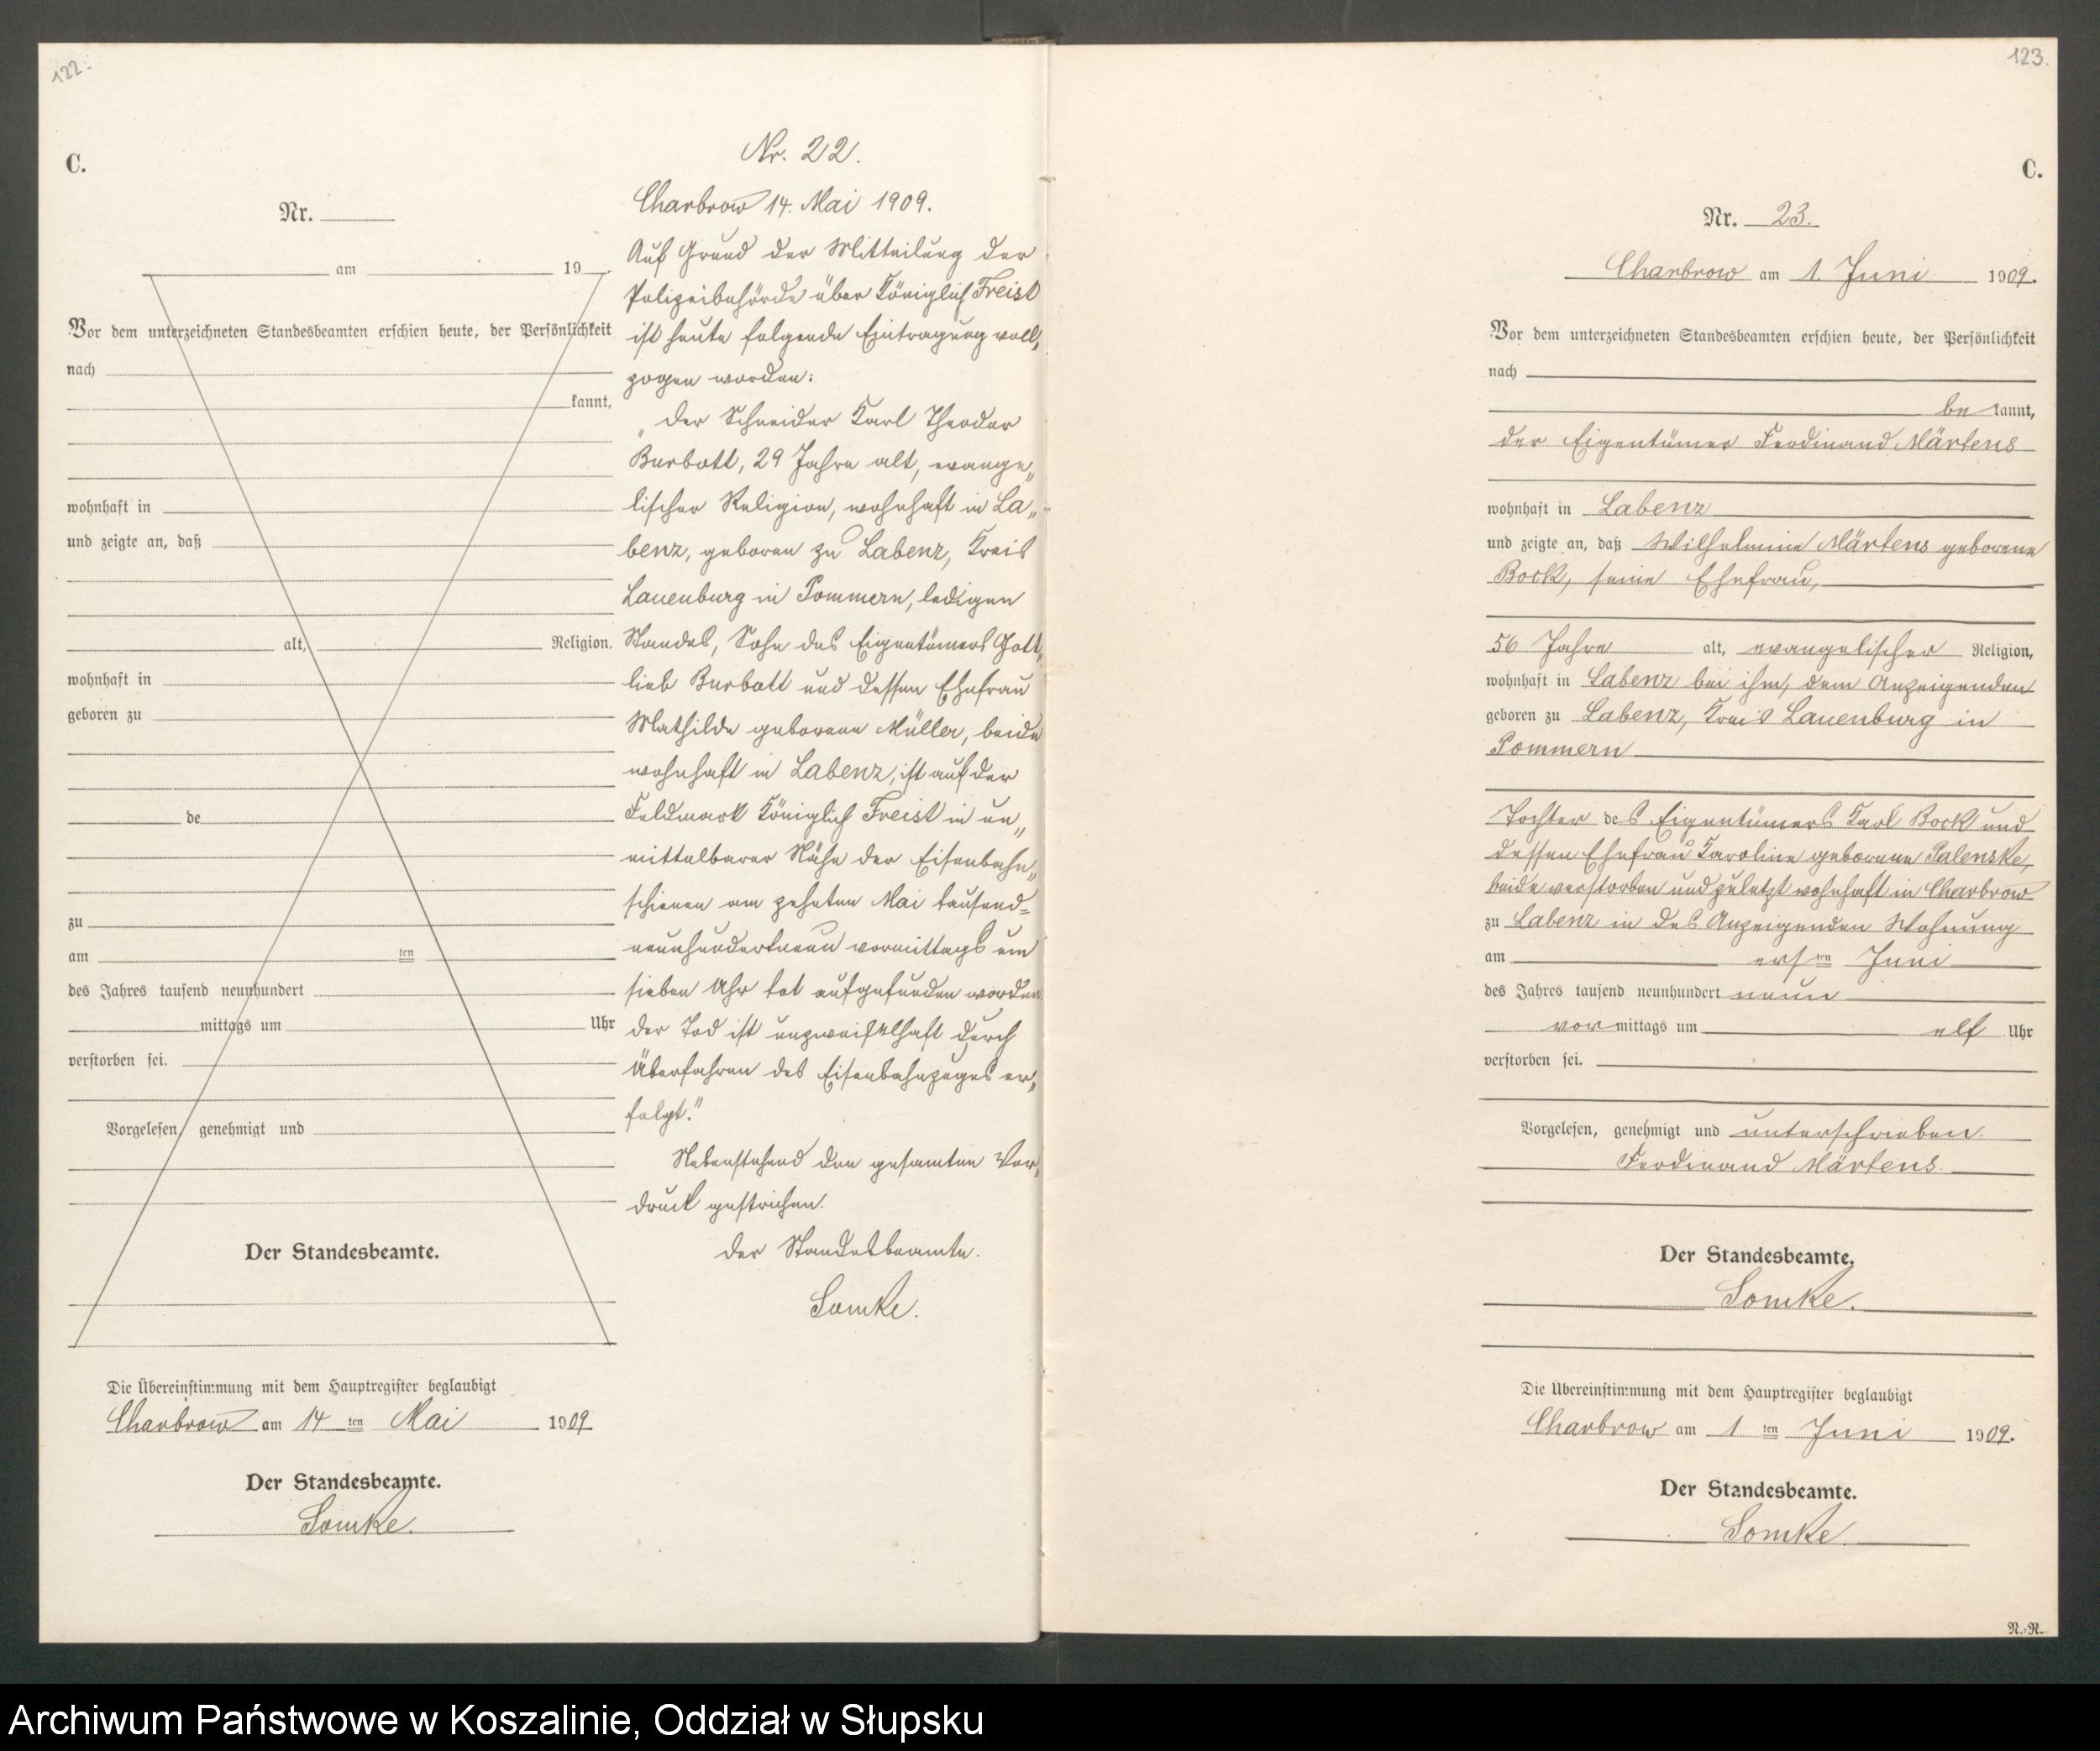 122.
C.
Nr.
am 19
Vor dem unterzeichneten Standesbeamten erschien heute, der Persönlichkeit
nach
kannt,
wohnhaft in
und zeigte an, daß
alt, Religion,
wohnhaft in
geboren zu
de
zu
am ten
des Jahres tausend neunhundert
mittags um Uhr
verstorben sei.
Vorgelesen, genehmigt und
Der Standesbeamte.
Die Übereinstimmung mit dem Hauptregister beglaubigt
Charbrow am 14 ten Mai 1909
Der Standesbeamte.
Lomke.
Nr. 22.
Charbrow 14. Mai 1909.
Auf Grund der Mitteilung der
Polizeibehörde über Königlich Freist
ist heute folgende Eintragung voll„
zogen worden:
„Der Schneider Karl Theodor
Burbott, 29 Jahre alt, evange„
lischer Religion, wohnhaft in La„
benz, geboren zu Labenz, Kreis
Lauenburg in Pommern, ledigen
Standes, Sohn des Eigentümers Gott„
lieb Burbott und dessen Ehefrau
Mathilde geborene Müller, beide
wohnhaft in Labenz, ist auf der
Feldmark Königlich Freist in un„
mittelbarer Nähe der Eisenbahn„
schienen am zehnten Mai tausend=
neunhundertneun vormittags um
sieben Uhr tot aufgefunden worden
der Tod ist unzweifelhaft durch
Überfahren des Eisenbahnzuges er„
folgt."
Nebenstehend den gesamten Vor„
druck gestrichen.
Der Standesbeamte.
Lomke.
123.
C.
Nr. 23.
Charbrow am 1. Juni 1909.
Vor dem unterzeichneten Standesbeamten erschien heute, der Persönlichkeit
nach
be kannt,
der Eigentümer Ferdinand Märtens
wohnhaft in Labenz
und zeigte an, daß Wilhelmine Märtens geborene
Bock, seine Ehefrau,
56 Jahre alt, evangelischer Religion,
wohnhaft in Labenz bei ihm, dem Anzeigenden
geboren zu Labenz, Kreis Lauenburg in
Pommern
Tochter des Eigentümers Karl Bock und
dessen Ehefrau Karoline geborene Palenske,
beide verstorben und zuletzt wohnhaft in Charbrow
zu Labenz in des Anzeigenden Wohnung
am ersten Juni
des Jahres tausend neunhundert neun
vormittags um elf Uhr
verstorben sei.
Vorgelesen, genehmigt und unterschrieben.
Ferdinand Märtens.
Der Standesbeamte.
Lomke.
Die Übereinstimmung mit dem Hauptregister beglaubigt
Charbrow am 1 ten Juni 1909.
Der Standesbeamte.
Lomke.
N.-R.
Archiwum Państwowe w Koszalinie, Oddział w Słupsku